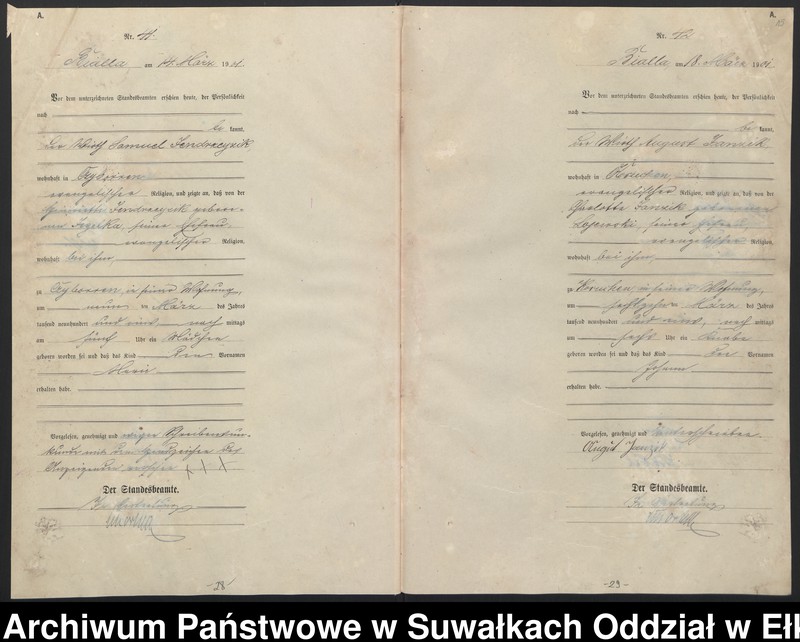 A.
Nr.
Bialla, am 14. März 1901
Vor dem unterzeichneten Standesbeamten erschien heute, der Persönlichkeit
nach
be kannt,
der Wirth Samuel Jendreyzik
wohnhaft in
evangelischer Religion, und zeigte an, daß von der
Jendreyzik gebore-
nen seine Ehefrau
evangelischer Religion,
wohnhaft bei ihm,
zu in seiner Wohnung,
am neun ten März des Jahres
tausend neunhundert und eins, nach mittags
um fünf Uhr ein Mädchen
geboren worden sei und daß das Kind den Vornamen
Marie
erhalten habe.
Vorgelesen, genehmigt und wegen Schreibensun-
kunde mit dem Handzeichen des
Anzeigenden versehen
+ + +
Der Standesbeamte.
In Vertretung
-28-
A.
Nr.
Bialla, am 18. März 1901.
Vor dem unterzeichneten Standesbeamten erschien heute, der Persönlichkeit
nach
be kannt,
der Wirth August Janzik
wohnhaft in
evangelischer Religion, und zeigte an, daß von der
Charlotte Janzik geborenen
seiner Ehefrau,
evangelischer Religion,
wohnhaft bei ihm,
zu in seiner Wohnung,
am sechszehnten März des Jahres
tausend neunhundert und eins, nach mittags
um sechs Uhr ein Knabe
geboren worden sei und daß das Kind den Vornamen
Johann
erhalten habe.
Vorgelesen, genehmigt und unterschrieben.
August Janzik
Der Standesbeamte.
In Vertretung
-29-
Archiwum Państwowe w Suwałkach Oddział w Eł